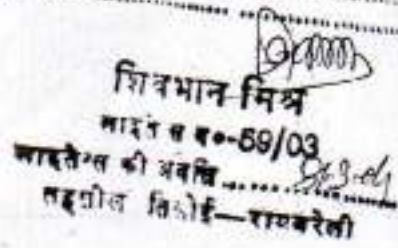 शिवभान मिश्र
लाइसेंस नं०-59/03
लाइसेंस की अवधि..........
तहसील तिलोई—रायबरेली